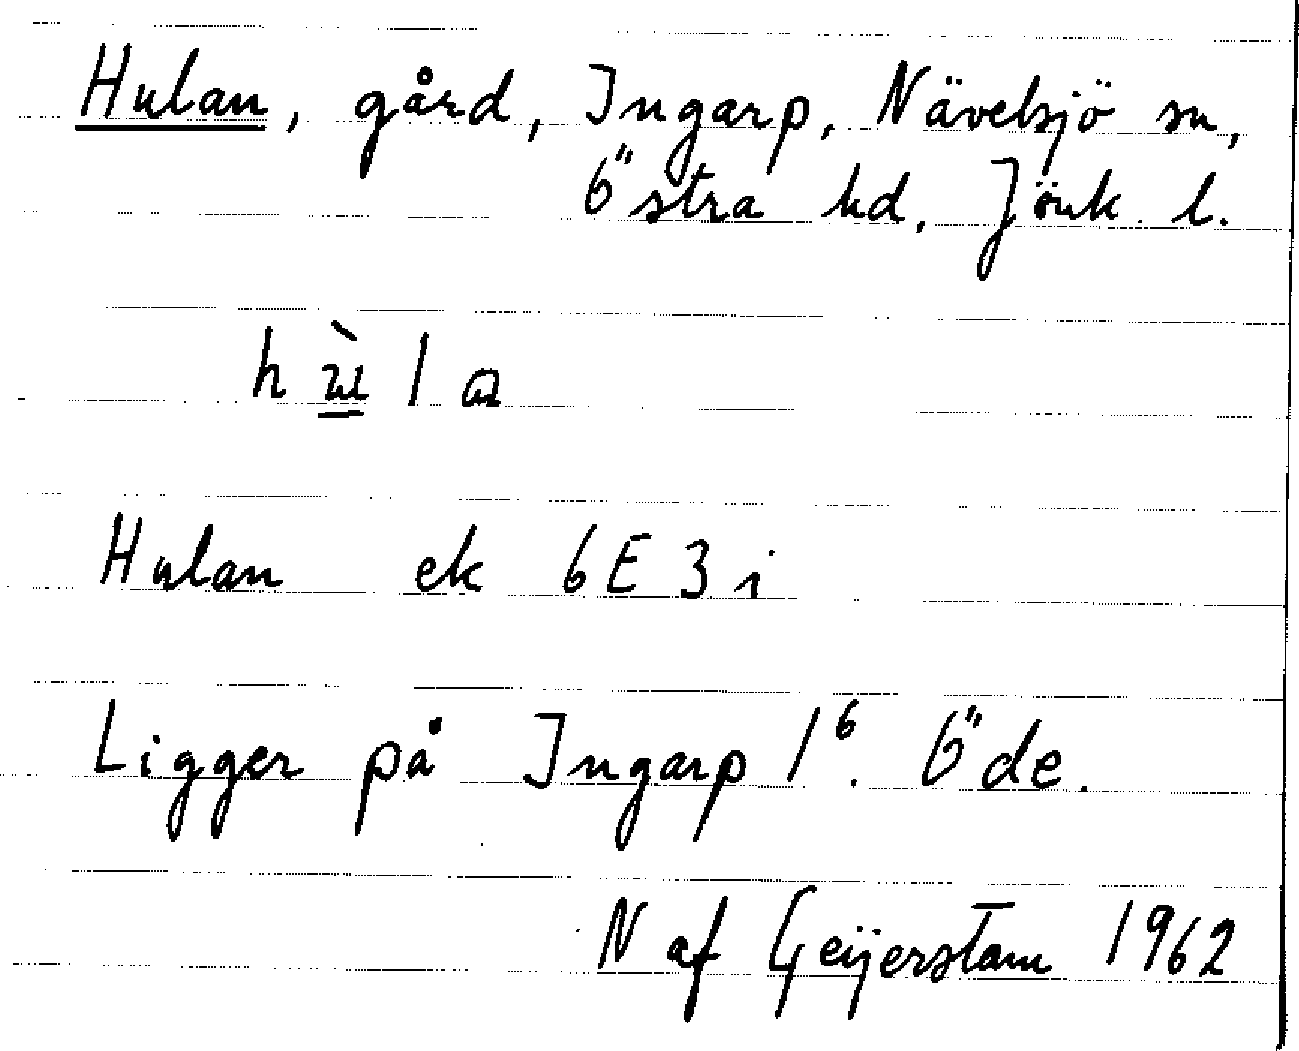 Hulan, gård, Ingarp, Nävelsjö sn,
Östra hd, Jönk. l.
Hulan ek 6E 3i
Ligger på Ingarp 1⁶. Öde.
N af Geijerstam 1962